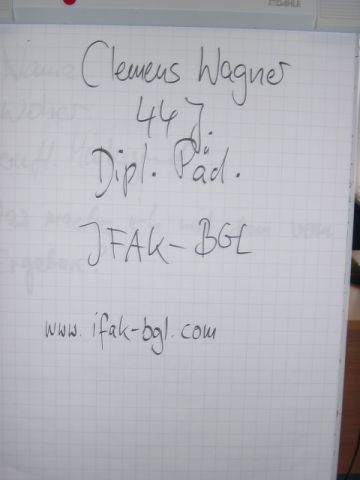 Clemens Wagner
44 J.
Dipl. Päd.
JFAK-BGL
www.ifak-bgl.com